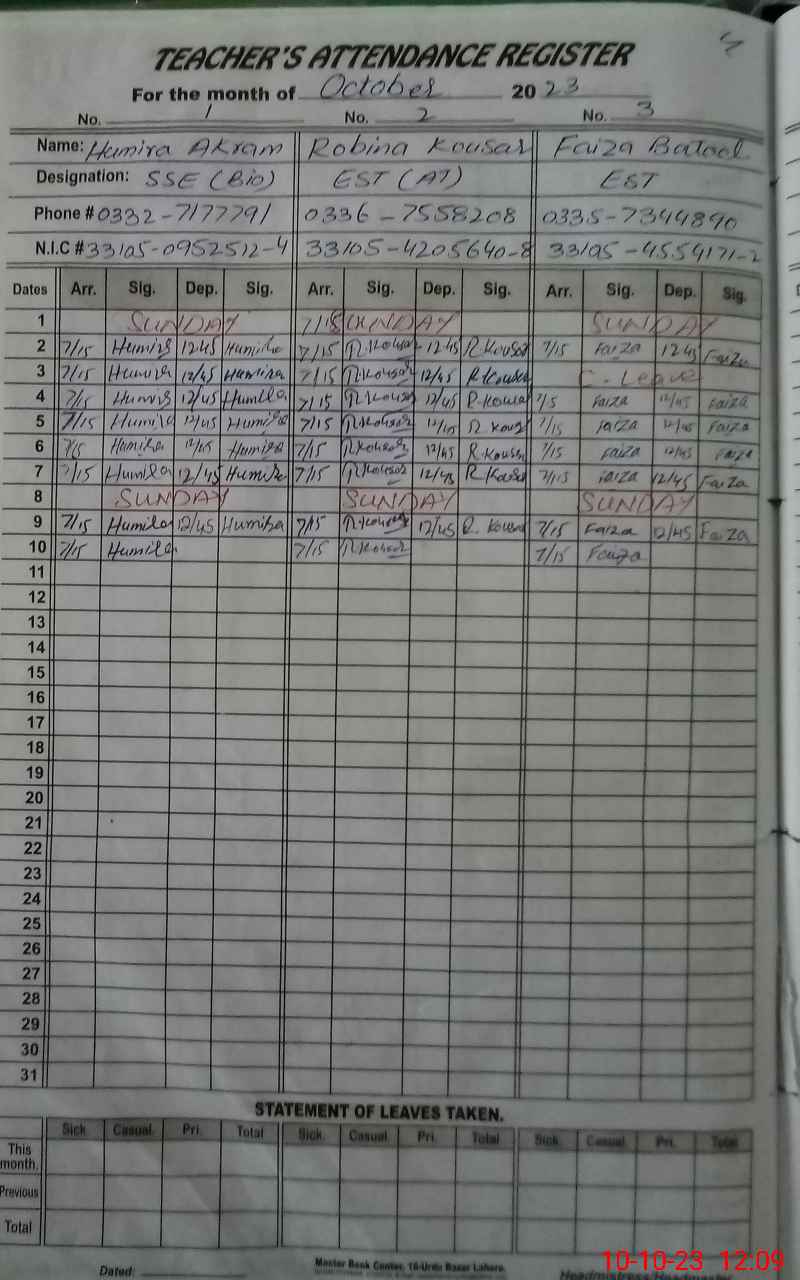 TEACHER'S ATTENDANCE REGISTER
For the month of October 2023
No. 1 No. 2 No. 3
Name: Humira Akram Robina Kousar Faiza Batool
Designation: SSE (Bio) EST (AT) EST
Phone # 0332-7177791 0336-7558208 0335-7344890
N.I.C # 33105-0952512-4 33105-4205640-8 33105-4554171-2
Dates Arr. Sig. Dep. Sig. Arr. Sig. Dep. Sig. Arr. Sig. Dep. Sig.
1 SUNDAY 7/15 SUNDAY SUNDAY
2 7/15 Humira 1245 Humira 7/15 R.Kousar 1245 R.Kousar 7/15 Faiza 1245 Faiza
3 7/15 Humira 12/45 Humira 7/15 R.Kousar 12/45 R.Kousar C. Leave
4 7/15 Humira 12/45 Humira 7/15 R.Kousar 12/45 R.Kousar 7/15 Faiza 12/45 Faiza
5 7/15 Humira 12/45 Humira 7/15 R.Kousar 12/45 R.Kousar 7/15 Faiza 12/45 Faiza
6 7/15 Humira 12/45 Humira 7/15 R.Kousar 12/45 R.Kousar 7/15 Faiza 12/45 Faiza
7 7/15 Humira 12/45 Humira 7/15 R.Kousar 12/45 R.Kousar 7/15 Faiza 12/45 Faiza
8 SUNDAY SUNDAY SUNDAY
9 7/15 Humira 12/45 Humira 7/15 R.Kousar 12/45 R.Kousar 7/15 Faiza 12/45 Faiza
10 7/15 Humira 7/15 R.Kousar 7/15 Faiza
11
12
13
14
15
16
17
18
19
20
21
22
23
24
25
26
27
28
29
30
31
STATEMENT OF LEAVES TAKEN.
Sick. Casual. Pri. Total Sick. Casual. Pri. Total Sick. Casual. Pri. Total
This month.
Previous
Total
Dated: Master Book Center, 16-Urdu Bazar Lahore. Headmistress
10-10-23 12:09